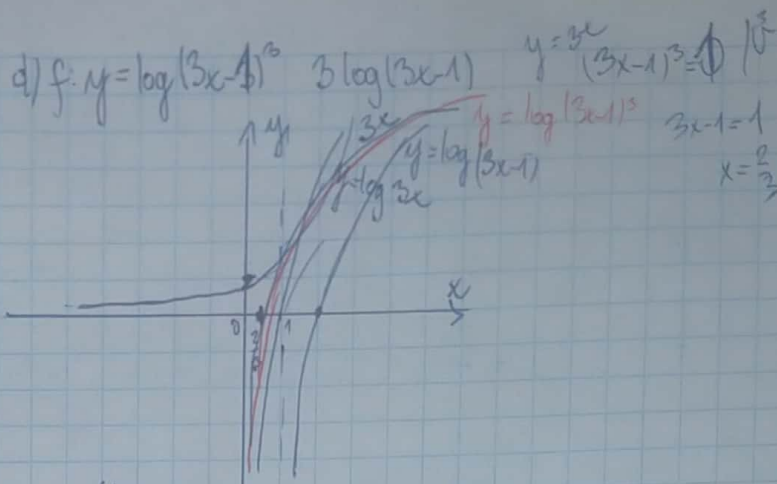 d) f: y = log(3x-1)³ 3 log(3x-1) y = 3ˣ
(3x-1)³ = 1 |∛
3x-1 = 1
x = 2/3
y = log(3x-1)³
3ˣ
y = log(3x-1)
y = log 3x
y
x
0 2/3 1